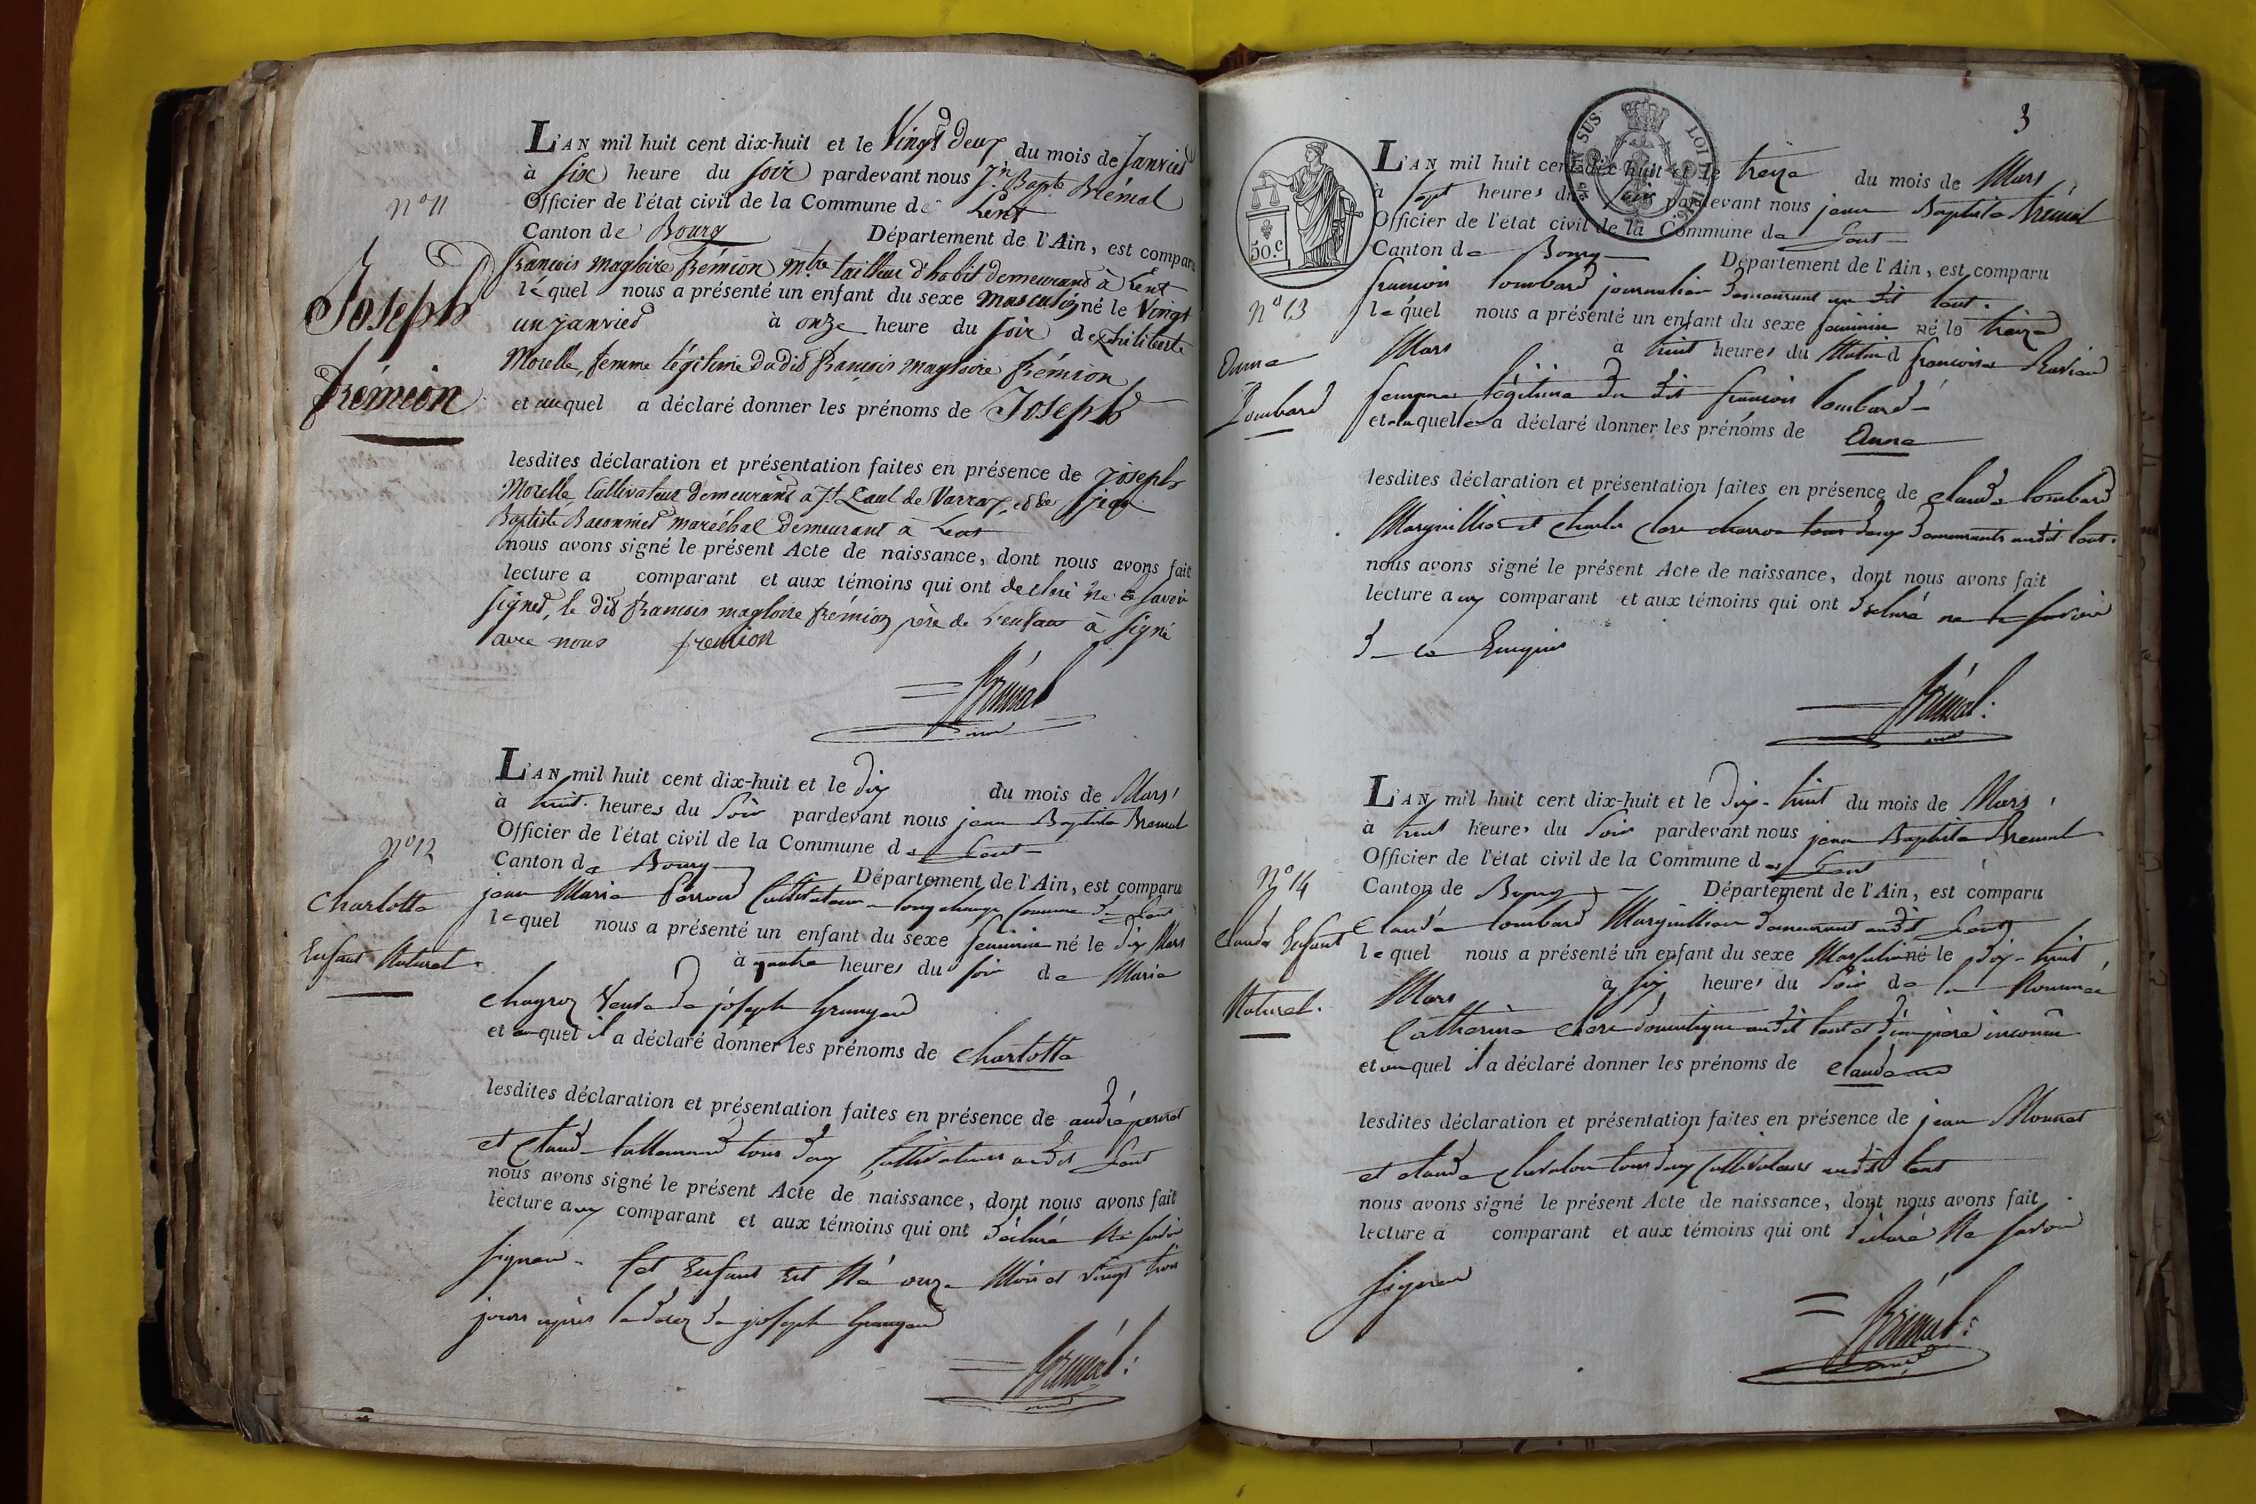 L'AN mil huit cent dix-huit et le Vingt deux du mois de Janvier
à six heure du soir pardevant nous Jn Bapte Brémal
Officier de l'état civil de la Commune de Lent
Canton de Bourg Département de l'Ain, est comparu
N° 11
françois magloire frémion mtre tailleur d'habit demeurant à Lent
lequel nous a présenté un enfant du sexe masculin né le Vingt
un janvier à onze heure du soir de philiberte
Morelle, femme légitime du dit françois magloire frémion
et auquel a déclaré donner les prénoms de Joseph
Joseph
frémion
lesdites déclaration et présentation faites en présence de joseph
Morelle Cultivateur demeurant a St Paul de Varrax, et de jean
Baptiste maréchal demeurant à Lent
nous avons signé le présent Acte de naissance, dont nous avons fait
lecture a comparant et aux témoins qui ont declaré ne savoir
signer, le dit françois magloire frémion père de l'enfant à signé
avec nous fremion
Brémal
L'AN mil huit cent dix-huit et le dix du mois de Mars
à huit heures du soir pardevant nous jean Baptiste Bremal
Officier de l'état civil de la Commune de Lent
Canton de Bourg Département de l'Ain, est comparu
N° 12
Charlotte
Enfant Naturel
jean Marie Cultivateur Commune de Lent
lequel nous a présenté un enfant du sexe feminin né le dix Mars
à quatre heures du soir de Marie
Veuve de joseph
et auquel il a déclaré donner les prénoms de Charlotte
lesdites déclaration et présentation faites en présence de andré perret
et Claude Lallemand tous deux Cultivateurs audit Lent
nous avons signé le présent Acte de naissance, dont nous avons fait
lecture aux comparant et aux témoins qui ont déclaré Ne savoir
signer. Cet Enfant est Né onze Mois et vingt trois
jours après le décès de joseph
Brémal
3
50.c
L'AN mil huit cent dix-huit et le treize du mois de Mars
à sept heures du soir pardevant nous jean Baptiste Bremal
Officier de l'état civil de la Commune de Lent
Canton de Bourg Département de l'Ain, est comparu
N° 13
Anne
Lombard
francois Lombard journalier demeurant au dit Lent.
lequel nous a présenté un enfant du sexe feminin né le treize
Mars à huit heures du Matin d francoise
femme légitime du dit francois Lombard
et a laquelle a déclaré donner les prénoms de Anne
lesdites déclaration et présentation faites en présence de Claude Lombard
Marguillier et Charles Clerc charron tous deux demeurants audit Lent.
nous avons signé le présent Acte de naissance, dont nous avons fait
lecture aux comparant et aux témoins qui ont declaré ne le savoir
de ce Enquis
Brémal
L'AN mil huit cent dix-huit et le dix-huit du mois de Mars
à huit heures du soir pardevant nous jean Baptiste Bremal
Officier de l'état civil de la Commune de Lent
Canton de Bourg Département de l'Ain, est comparu
N° 14
Claude Enfant
Naturel.
Claude Lombard Marguillier demeurant audit Lent
lequel nous a présenté un enfant du sexe Masculin né le dix-huit
Mars à six heures du soir de la Nommée
Catherine Clerc domestique audit Lent et d'un père inconnu
et auquel il a déclaré donner les prénoms de Claude
lesdites déclaration et présentation faites en présence de jean Monnet
et Claude Chevalon tous deux Cultivateurs audit Lent
nous avons signé le présent Acte de naissance, dont nous avons fait
lecture a comparant et aux témoins qui ont déclaré Ne savoir
signer
Brémal